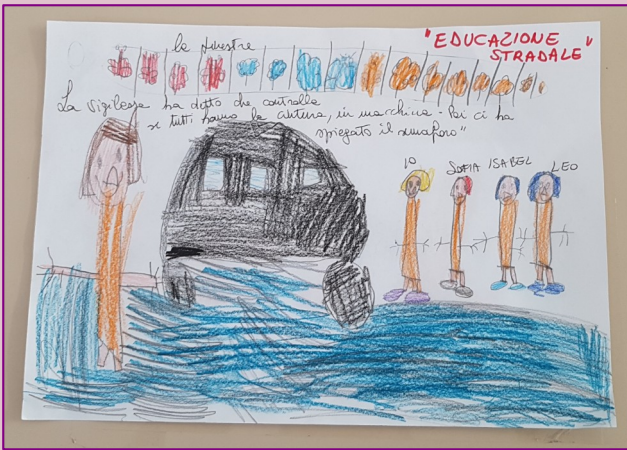 "EDUCAZIONE
STRADALE"
le finestre
La Vigilessa ha detto che controlla
se tutti hanno la cintura, in macchina - Poi ci ha
spiegato il semaforo"
IO
SOFIA
ISABEL
LEO